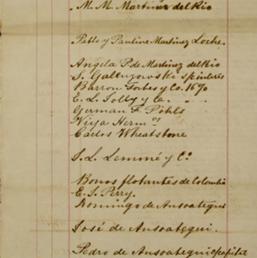 M. M. Martinez del Rio
Pablo y Pauline Martinez Loche.
Angela P. de Martinez del Rio
S. Galtuzowski
Barron Forbes y Co. 16%
E. L. Jolly y Ca. " "
German F. Pohls
Viya Herm.os
Carlos Wheatstone
S. L. Lemoné y Ca.
Bonos flotantes de Colombia
E. S. Perry.
Domingo de Ansoategui
José de Ansoategui.
Pedro de Ansoategui